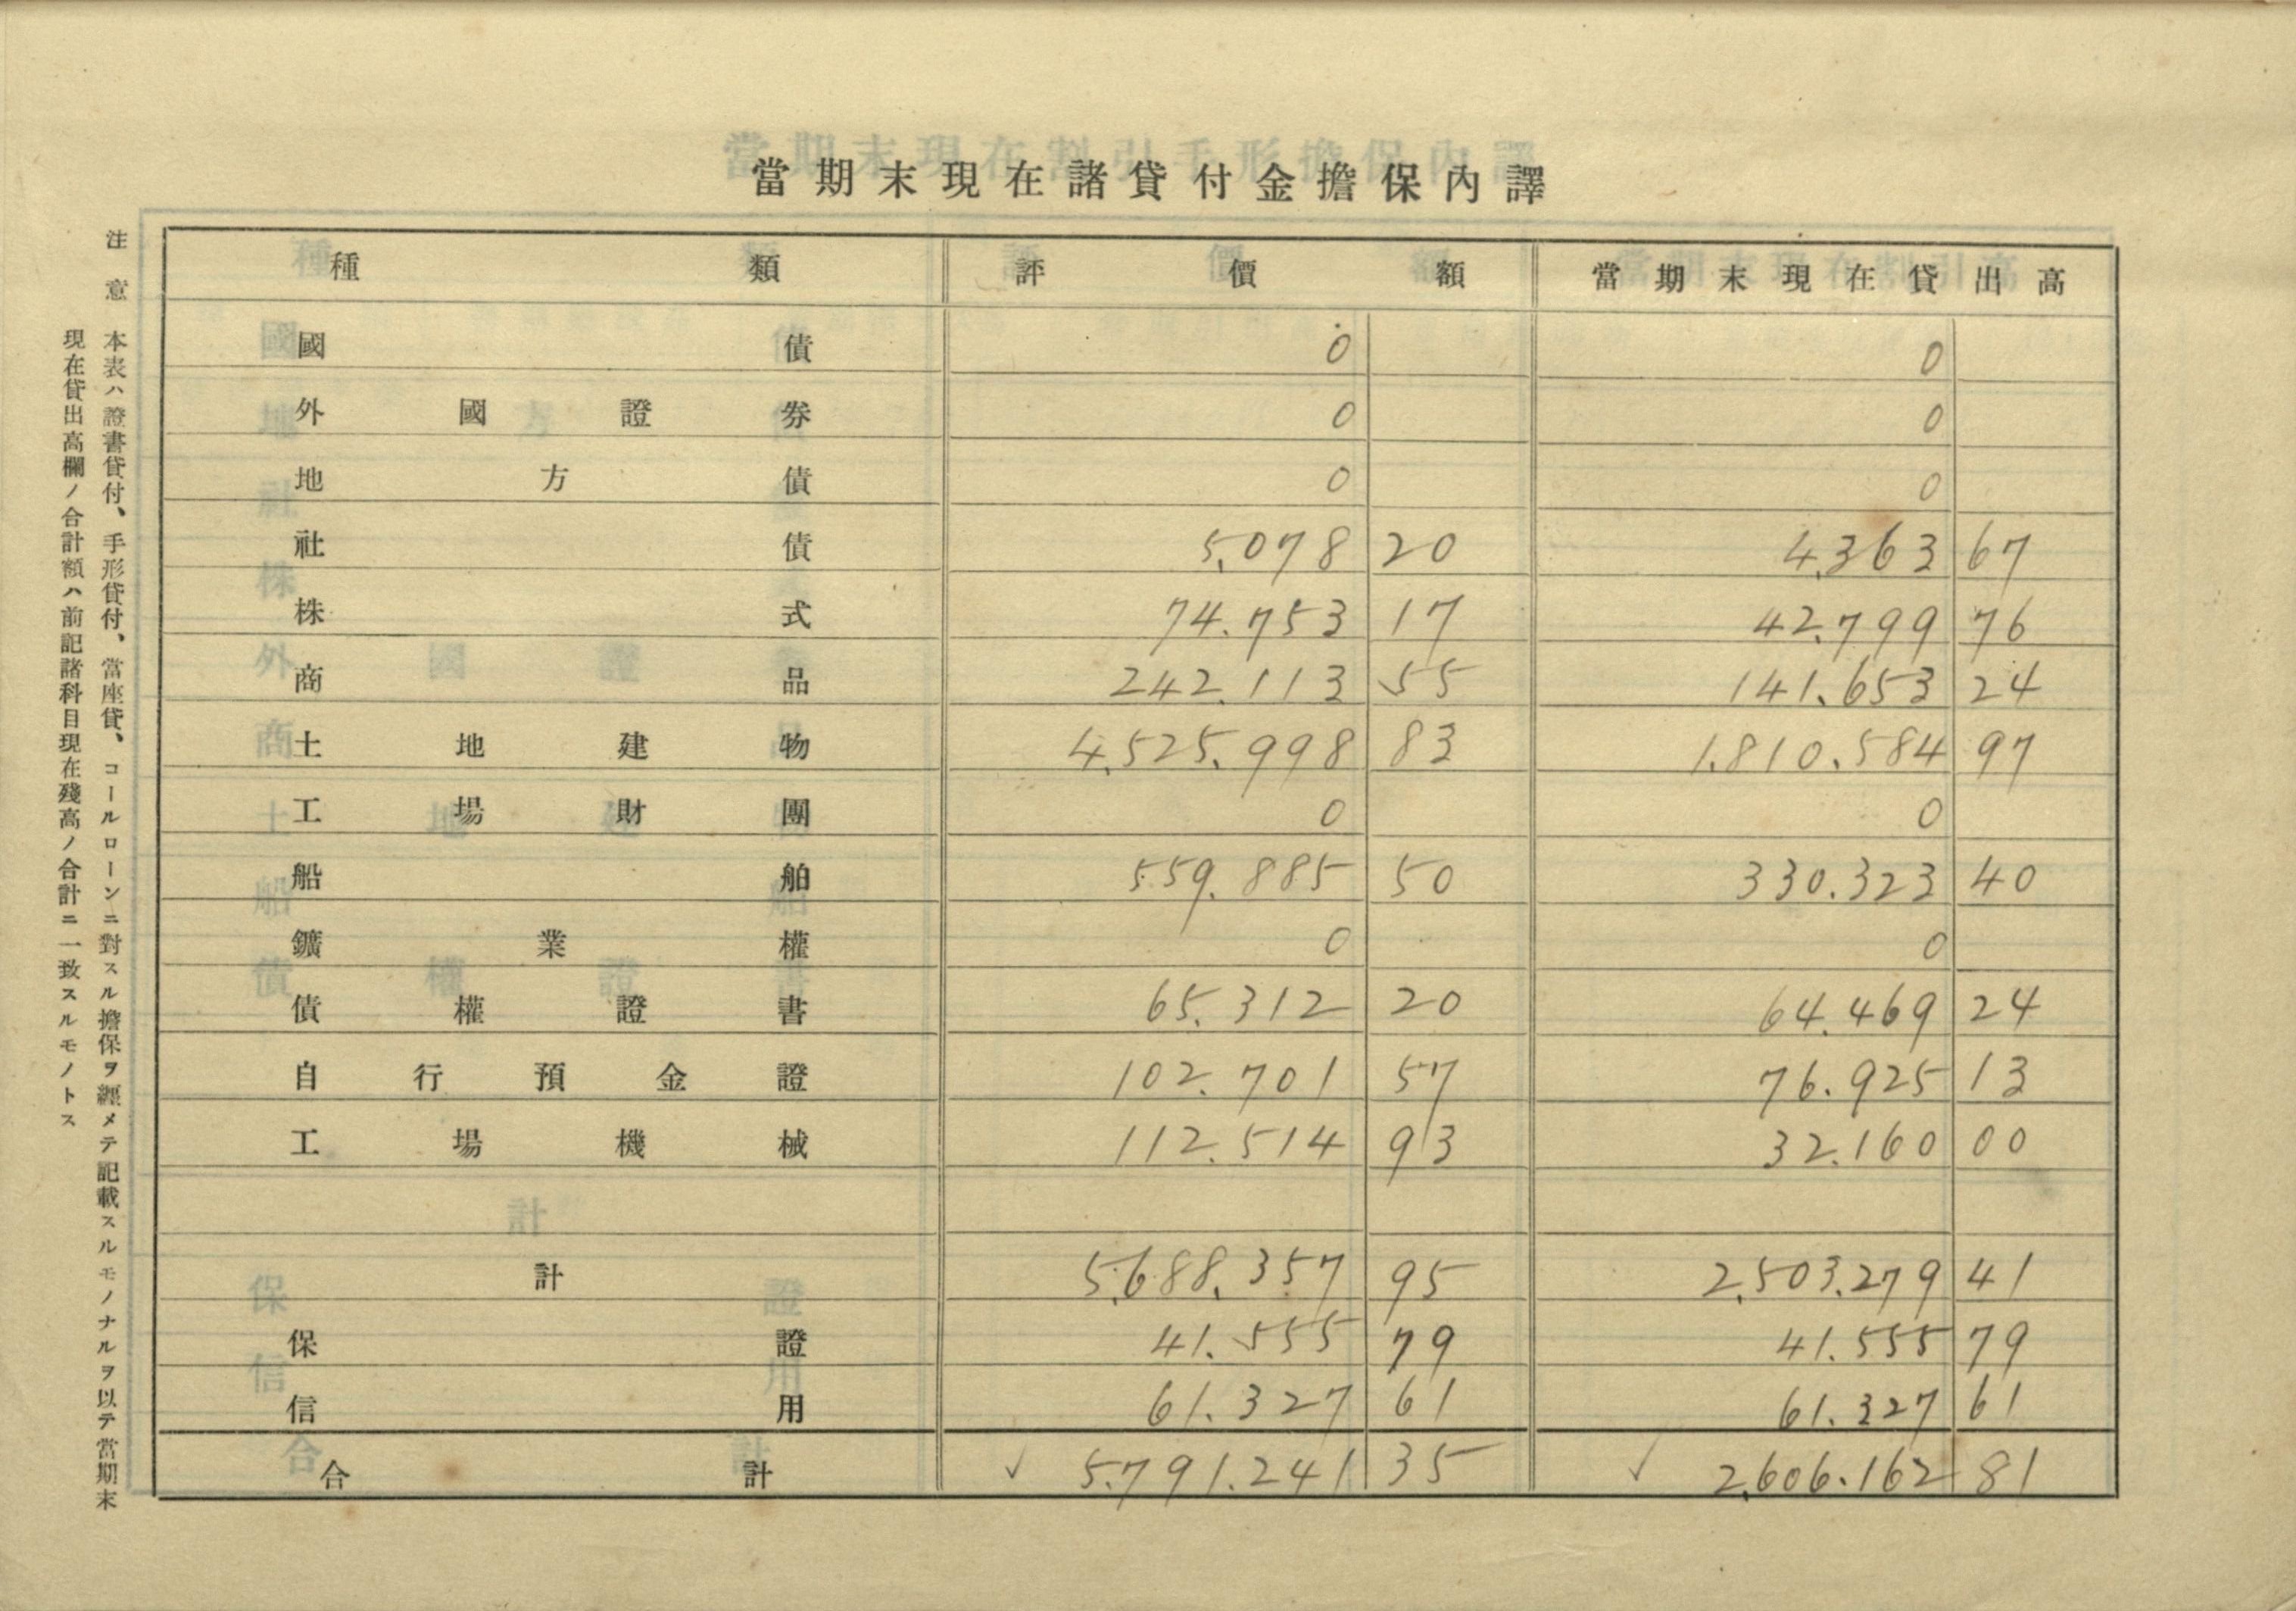 當期末現在諸貸付金擔保內譯
種類 評價額 當期末現在貸出高
國債 0 0
外國證券 0 0
地方債 0 0
社債 5.078 20 4.363 67
株式 74.753 17 42.799 76
商品 242.113 55 141.653 24
土地建物 4.525.998 83 1.810.584 97
工場財團 0 0
船舶 559.885 50 330.323 40
鑛業權 0 0
債權證書 65.312 20 64.469 24
自行預金證 102.701 57 76.925 13
工場機械 112.514 93 32.160 00
計 5.688.357 95 2.503.279 41
保證 41.555 79 41.555 79
信用 61.327 61 61.327 61
合計 ✓ 5.791.241 35 ✓ 2.606.162 81
注意 本表ハ證書貸付、手形貸付、當座貸、コールローンニ對スル擔保ヲ纒メテ記載スルモノナルヲ以テ當期末
現在貸出高欄ノ合計額ハ前記諸科目現在殘高ノ合計ニ一致スルモノトス